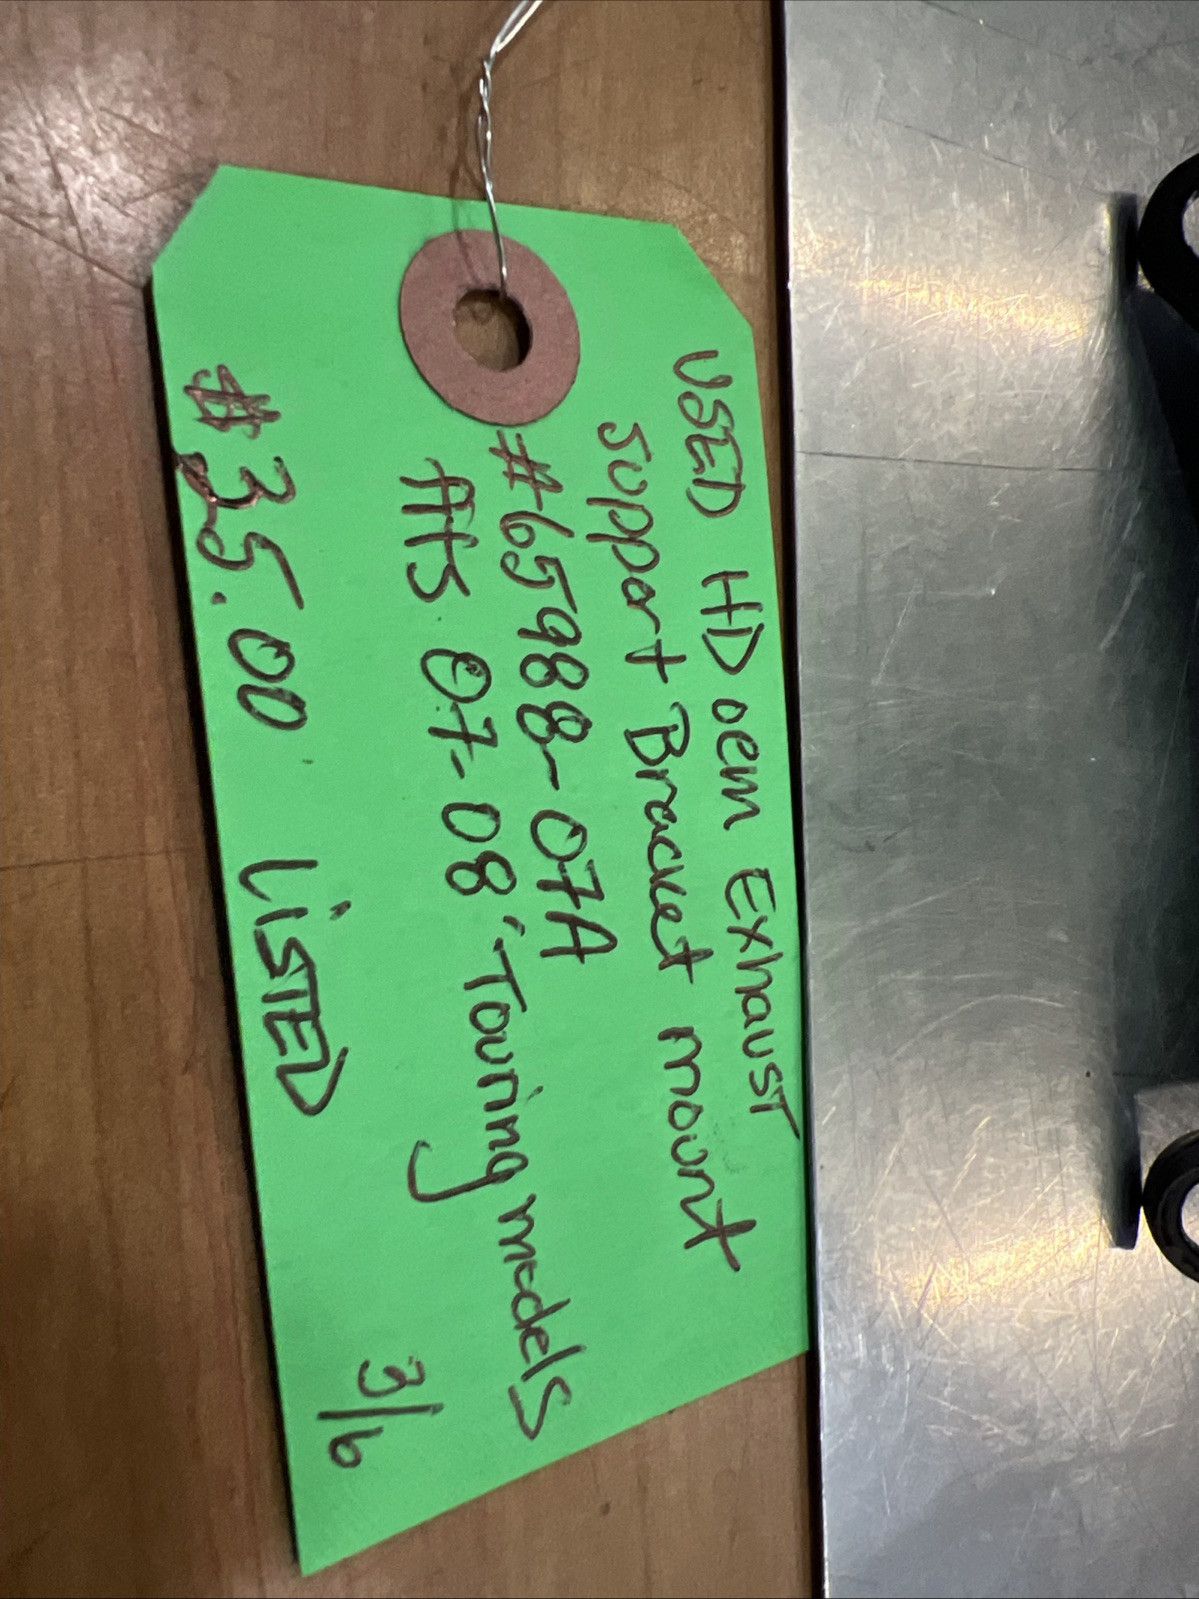 USED HD oem EXHAUST
support Bracket mount
#65988-07A
fits 07-08' Touring models
$35.00 LISTED 3/6